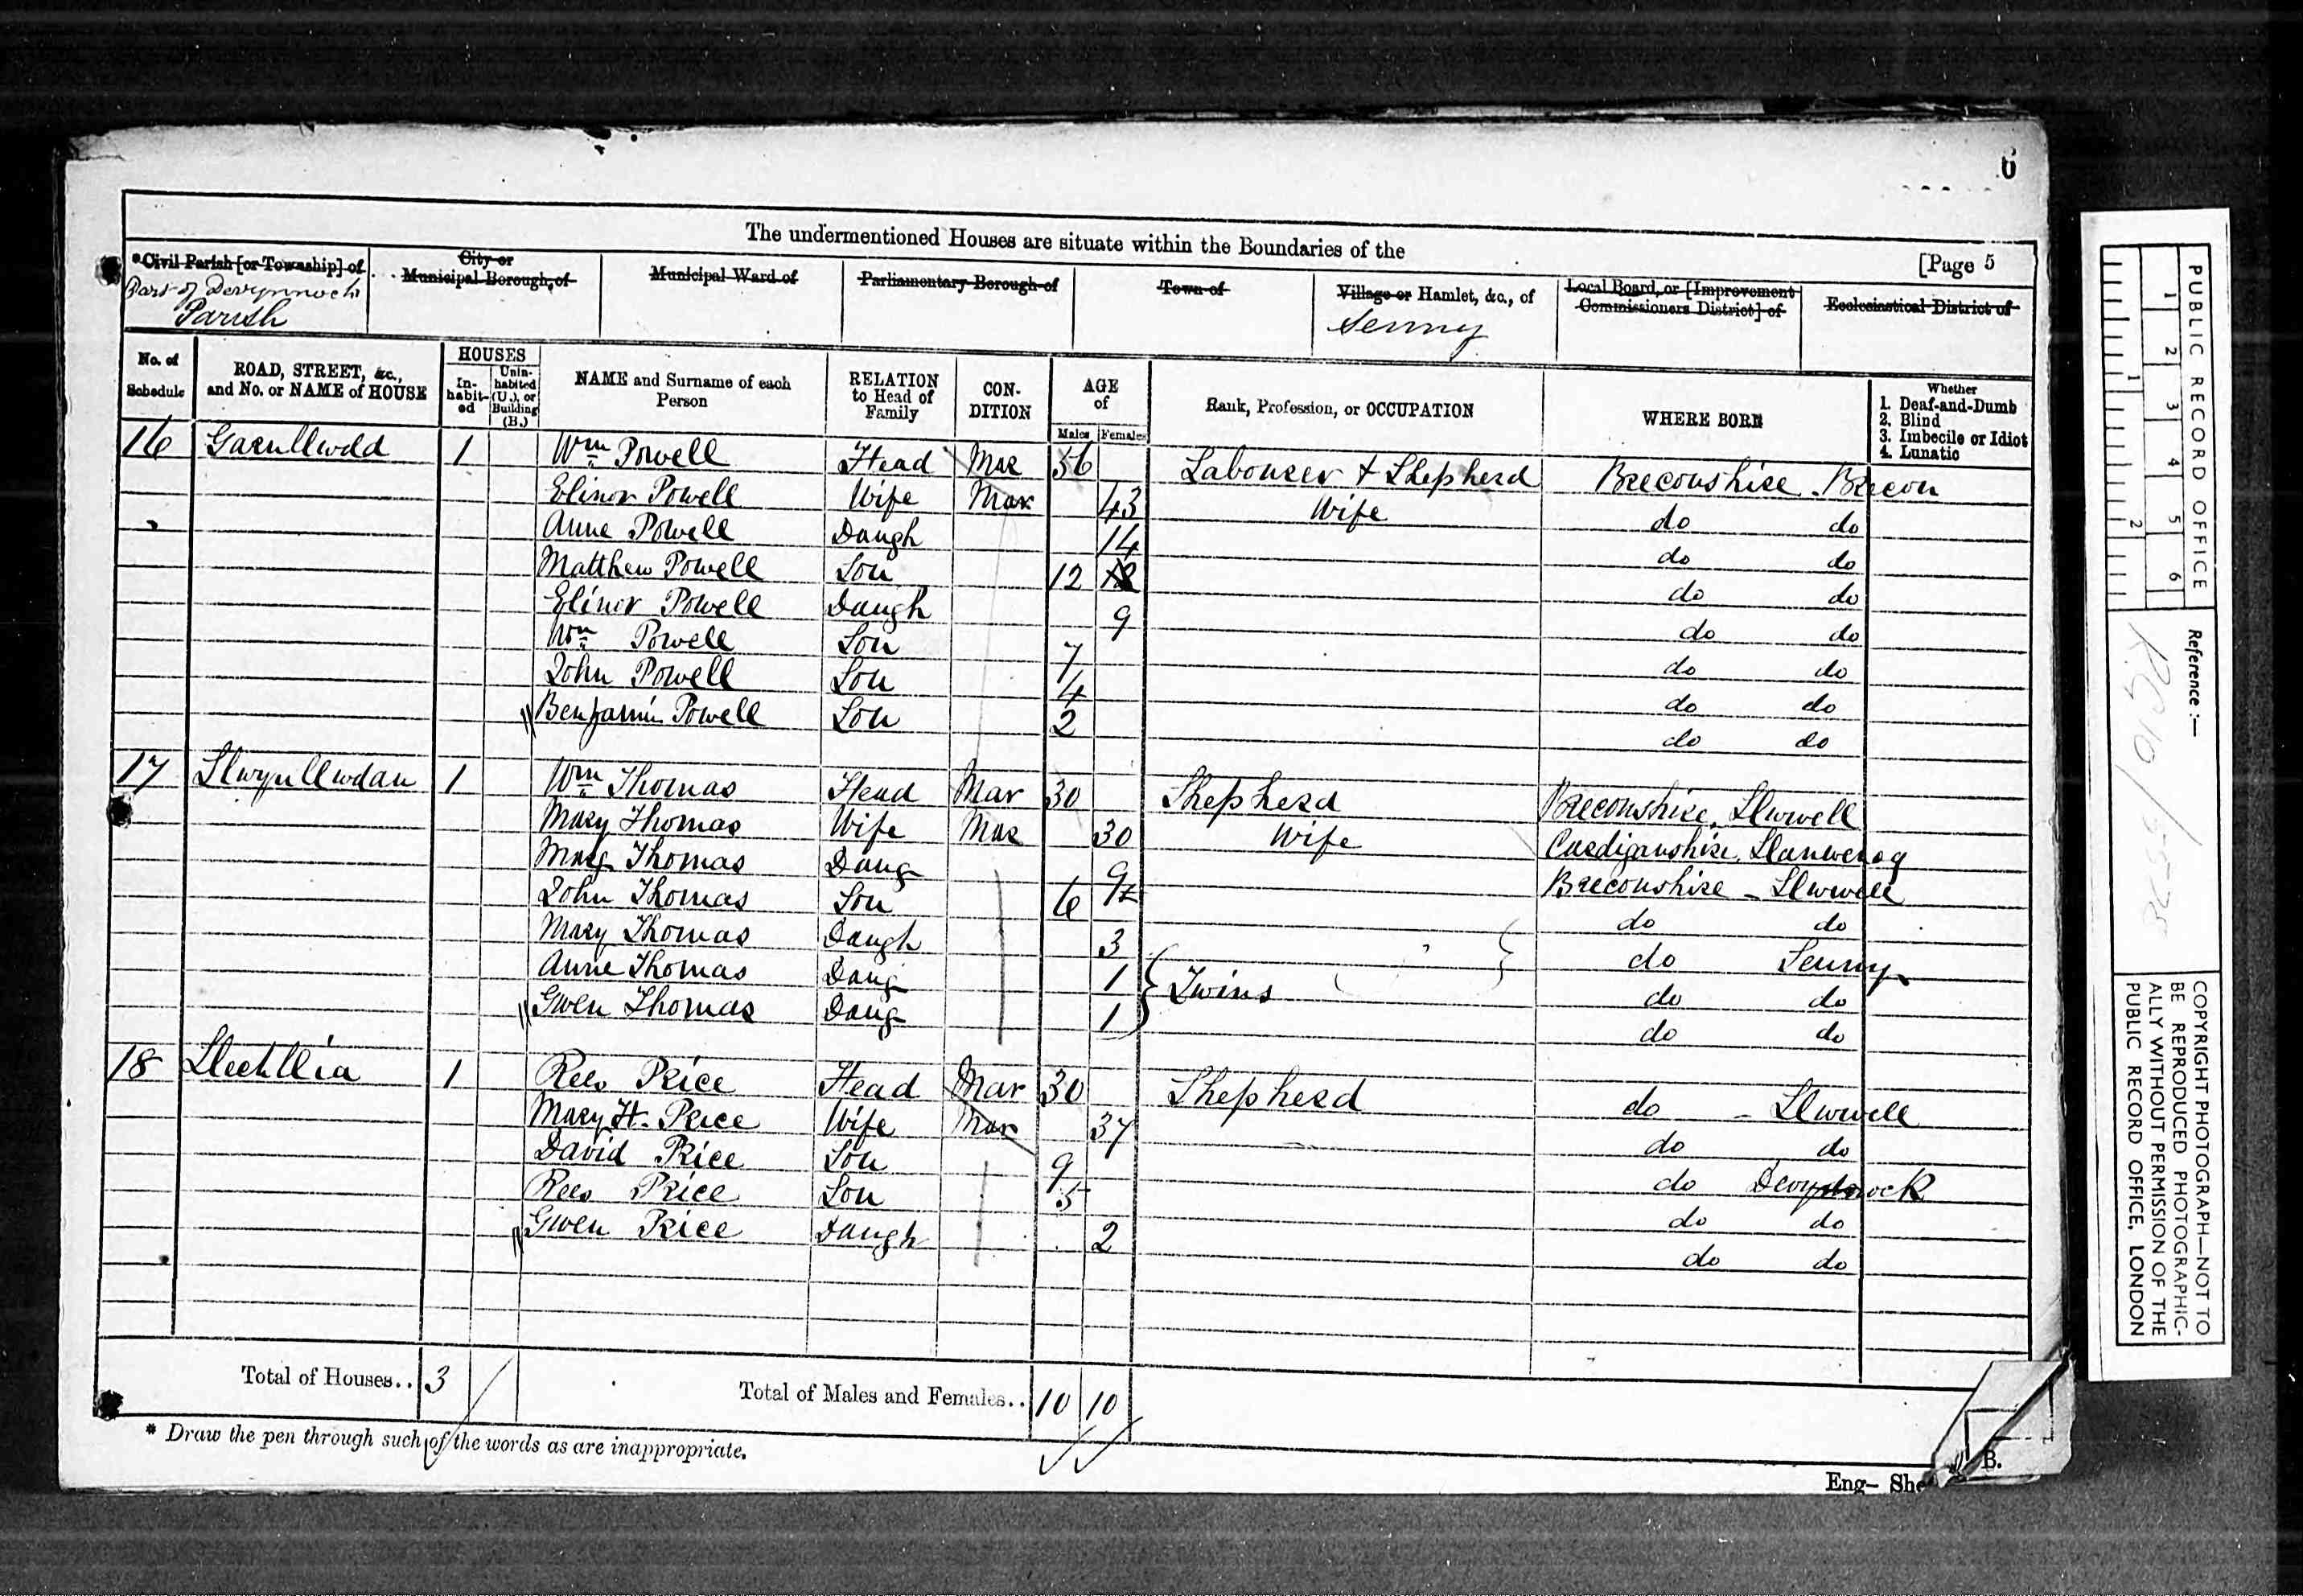 6
The undermentioned Houses are situate within the Boundaries of the
[Page 5
*Civil Parish [or Township] of
Part of Devynnock
Parish
City or
Municipal Borough, of
Municipal Ward of
Parliamentary Borough of
Town of
Village or Hamlet, &c., of
Senny
Local Board, or [Improvement
Commissioners District] of
Ecclesiastical District of
No. of
Schedule
ROAD, STREET, &c.,
and No. or NAME of HOUSE
HOUSES
In-
habit-
ed
Unin-
habited
(U.), or
Building
(B.)
NAME and Surname of each
Person
RELATION
to Head of
Family
CON-
DITION
AGE
of
Males Females
Rank, Profession, or OCCUPATION
WHERE BORN
Whether
1. Deaf-and-Dumb
2. Blind
3. Imbecile or Idiot
4. Lunatic
16 Garnllwdd 1 Wm Powell Head Mar 56 Labourer + Shepherd Breconshire. Brecon
Elinor Powell Wife Mar 43 Wife do do
Anne Powell Daugh 14 do do
Matthew Powell Son 12 do do
Elinor Powell Daugh 9 do do
Wm Powell Son 7 do do
John Powell Son 4 do do
Benjamin Powell Son 2 do do
17 Llwynllwdan 1 Wm Thomas Head Mar 30 Shepherd Breconshire, Llwwell
Mary Thomas Wife Mar 30 Wife Cardiganshire, Llanwenog
Marg Thomas Daug 9 Breconshire - Llwwell
John Thomas Son 6 do do
Mary Thomas Daugh 3 do Senny
Anne Thomas Daug 1 } Twins do do
Gwen Thomas Daug 1 do do
18 Llechllia 1 Rees Price Head Mar 30 Shepherd do - Llwwell
Mary H. Price Wife Mar 37 do do
David Price Son 9 do Devynnock
Rees Price Son 5 do do
Gwen Price Daugh 2 do do
Total of Houses.. 3
Total of Males and Females.. 10 10
* Draw the pen through such of the words as are inappropriate.
Eng- She
B.
PUBLIC RECORD OFFICE
1 2 3 4 5 6
1 2
Reference :-
RG10/5578
COPYRIGHT PHOTOGRAPH—NOT TO
BE REPRODUCED PHOTOGRAPHIC-
ALLY WITHOUT PERMISSION OF THE
PUBLIC RECORD OFFICE, LONDON